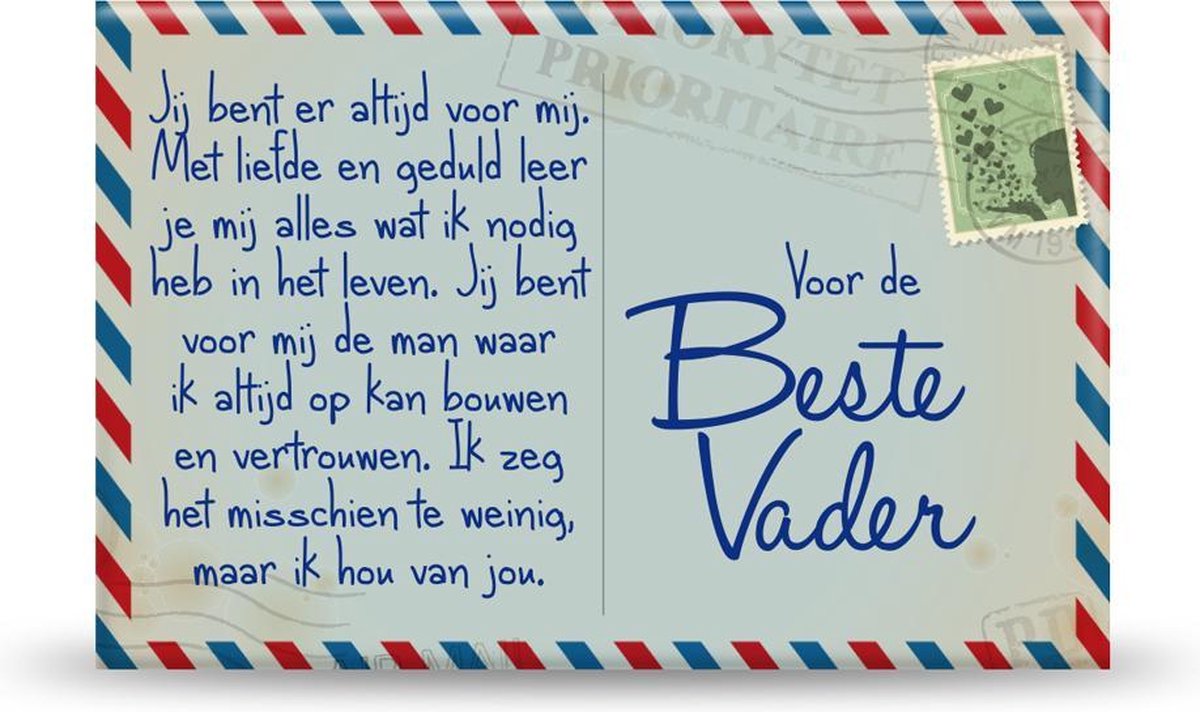 Jij bent er altijd voor mij.
Met liefde en geduld leer
je mij alles wat ik nodig
heb in het leven. Jij bent
voor mij de man waar
ik altijd op kan bouwen
en vertrouwen. Ik zeg
het misschien te weinig,
maar ik hou van jou.
PRIORYTET
PRIORITAIRE
Voor de
Beste
Vader